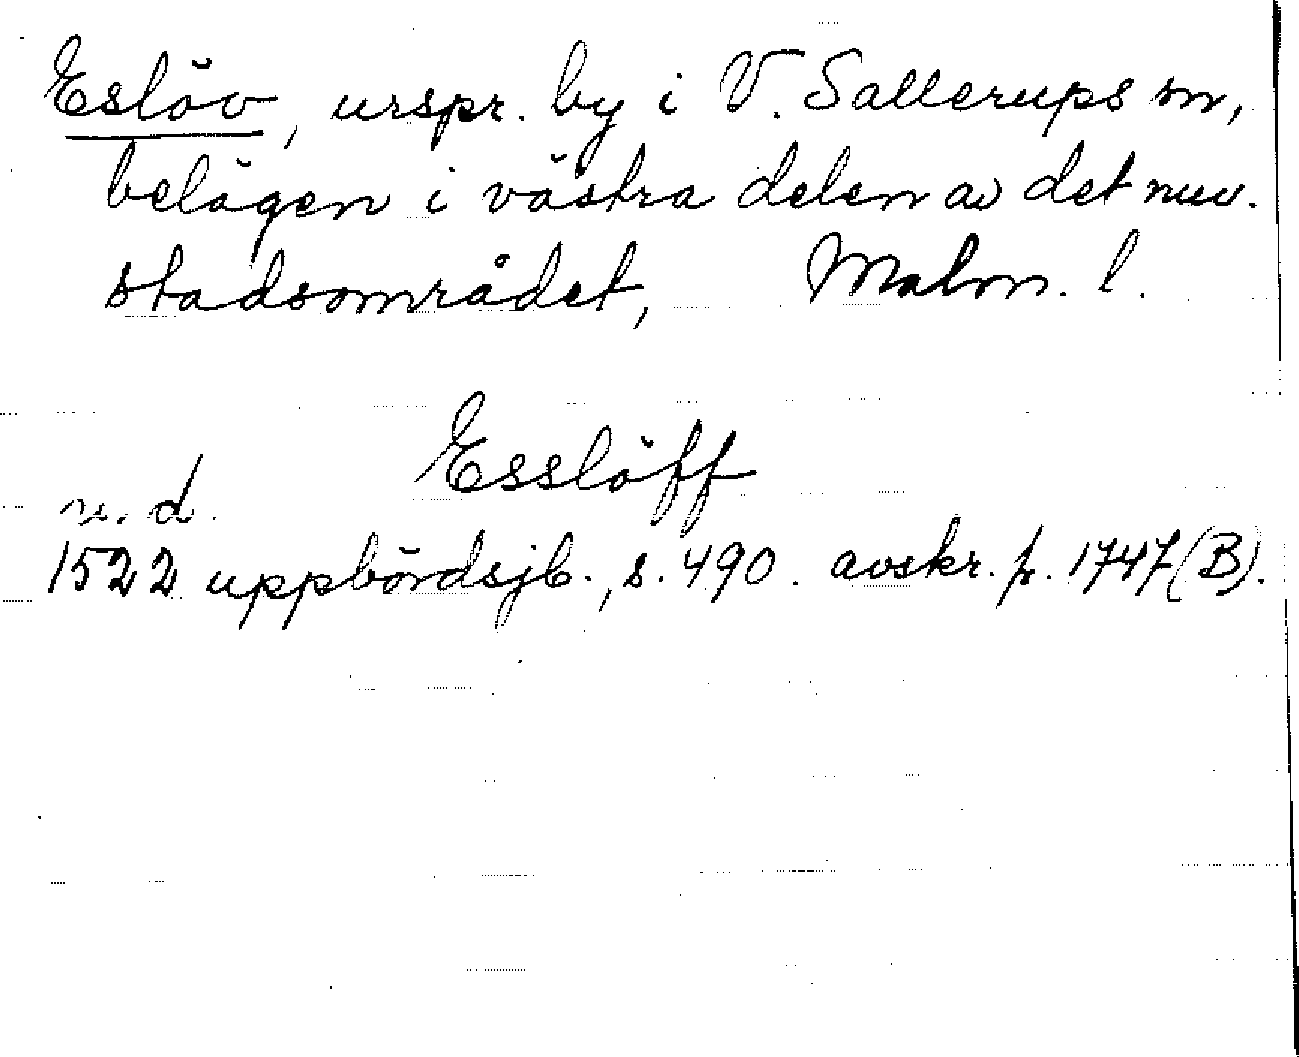 Eslöv, urspr. by i V. Sallerups sn,
belägen i västra delen av det nuv.
stadsområdet, Malm. l.
Esslöff
u. d.
1522 uppbördsjb., s. 490. avskr. fr. 1747 (B).